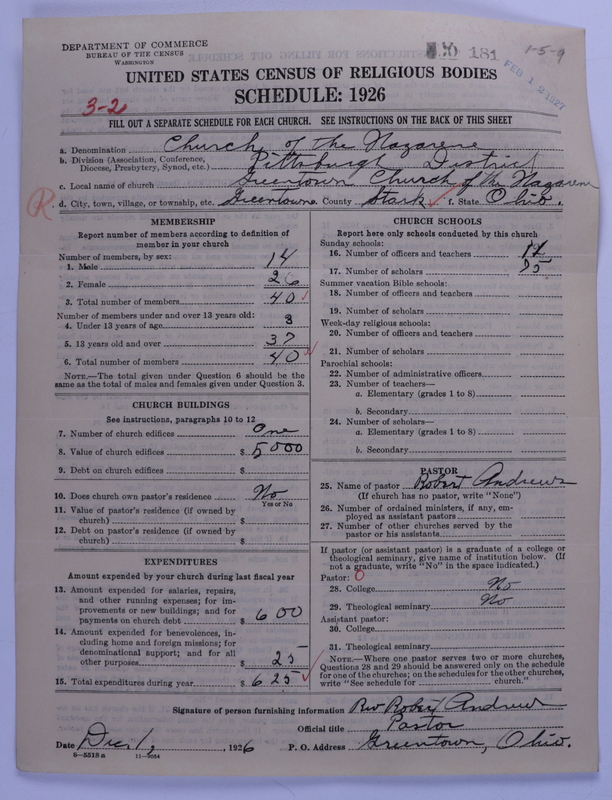 DEPARTMENT OF COMMERCE
BUREAU OF THE CENSUS
WASHINGTON
181
1-5-9
FEB 12 1927
UNITED STATES CENSUS OF RELIGIOUS BODIES
SCHEDULE: 1926
3-2
FILL OUT A SEPARATE SCHEDULE FOR EACH CHURCH. SEE INSTRUCTIONS ON THE BACK OF THIS SHEET
a. Denomination Church of the Nazarene
b. Division (Association, Conference, Diocese, Presbytery, Synod, etc.) Pittsburgh District
c. Local name of church Greentown Church of the Nazarene
R
d. City, town, village, or township, etc. Greentown County Stark f. State Ohio.
MEMBERSHIP
Report number of members according to definition of
member in your church
Number of members, by sex:
1. Male 14
2. Female 26
3. Total number of members 40
Number of members under and over 13 years old:
4. Under 13 years of age 3
5. 13 years old and over 37
6. Total number of members 40
NOTE.—The total given under Question 6 should be the
same as the total of males and females given under Question 3.
CHURCH BUILDINGS
See instructions, paragraphs 10 to 12
7. Number of church edifices One
8. Value of church edifices $ 5000
9. Debt on church edifices $
10. Does church own pastor's residence No
Yes or No
11. Value of pastor's residence (if owned by
church) $
12. Debt on pastor's residence (if owned by
church) $
EXPENDITURES
Amount expended by your church during last fiscal year
13. Amount expended for salaries, repairs,
and other running expenses; for im-
provements or new buildings; and for
payments on church debt $ 600
14. Amount expended for benevolences, in-
cluding home and foreign missions; for
denominational support; and for all
other purposes $ 25
15. Total expenditures during year $ 625
CHURCH SCHOOLS
Report here only schools conducted by this church
Sunday schools:
16. Number of officers and teachers
17. Number of scholars
Summer vacation Bible schools:
18. Number of officers and teachers
19. Number of scholars
Week-day religious schools:
20. Number of officers and teachers
21. Number of scholars
Parochial schools:
22. Number of administrative officers
23. Number of teachers—
a. Elementary (grades 1 to 8)
b. Secondary
24. Number of scholars—
a. Elementary (grades 1 to 8)
b. Secondary
PASTOR
25. Name of pastor Robert Andrews
(If church has no pastor, write "None")
26. Number of ordained ministers, if any, em-
ployed as assistant pastors
27. Number of other churches served by the
pastor or his assistants
If pastor (or assistant pastor) is a graduate of a college or
theological seminary, give name of institution below. (If
not a graduate, write "No" in the space indicated.)
Pastor: 0
28. College No
29. Theological seminary No
Assistant pastor:
30. College
31. Theological seminary
NOTE.—Where one pastor serves two or more churches,
Questions 28 and 29 should be answered only on the schedule
for one of the churches; on the schedules for the other churches,
write "See schedule for church."
Signature of person furnishing information Rev Robert Andrews
Official title Pastor
Date Dec 1, 1926 P. O. Address Greentown, Ohio.
8-5518 a 11-9084